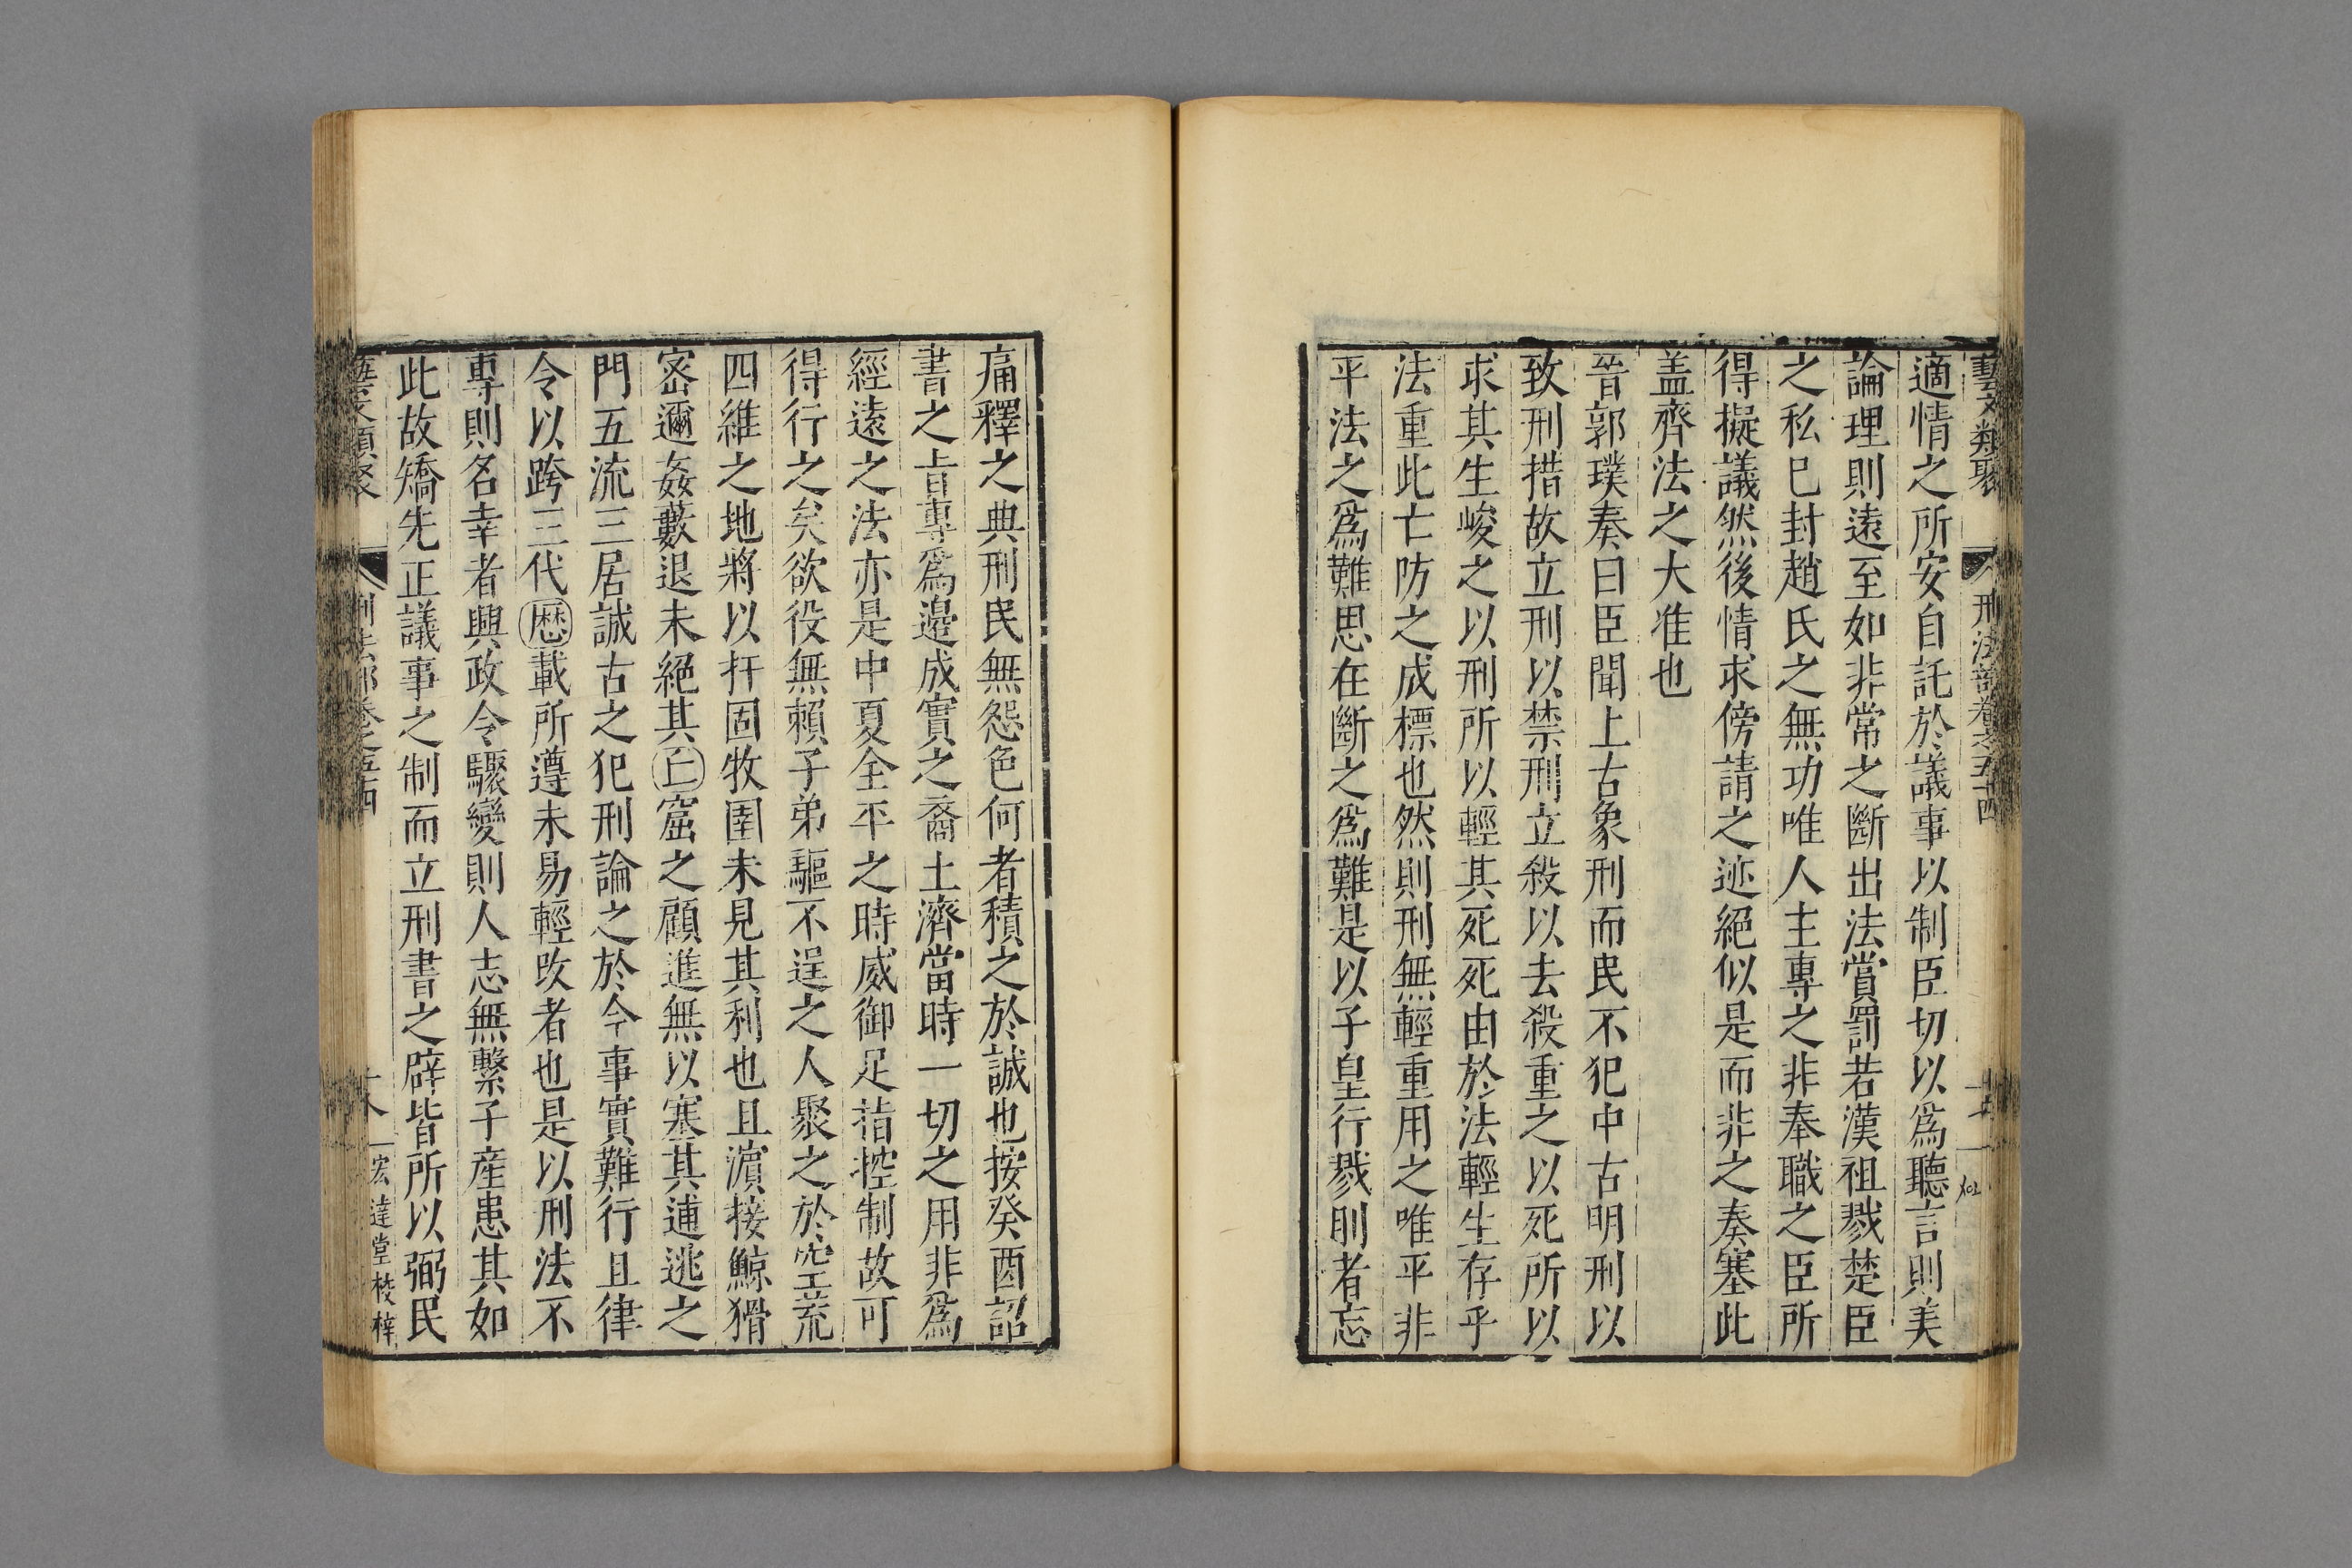 藝文類聚 刑法部卷之五十四
適情之所安自託於議事以制臣切以爲聽言則美
論理則遠至如非常之斷出法賞罰若漢祖戮楚臣
之私巳封趙氏之無功唯人主專之非奉職之臣所
得擬議然後情求傍請之迹絕似是而非之奏塞此
盖齊法之大准也
晉郭璞奏曰臣聞上古象刑而民不犯中古明刑以
致刑措故立刑以禁刑立殺以去殺重之以死所以
求其生峻之以刑所以輕其死死由於法輕生存乎
法重此亡防之成標也然則刑無輕重用之唯平非
平法之爲難思在斷之爲難是以子皐行戮刖者忘
痛釋之典刑民無怨色何者積之於誠也按癸酉詔
書之旨專爲邉成實之裔土濟當時一切之用非爲
經遠之法亦是中夏全平之時威御足㨖控制故可
得行之矣欲役無賴子弟驅不逞之人聚之於空荒
四維之地將以扞固牧圉未見其利也且濵接鯨猾
宻邇姦藪退未絕其亡窟之顧進無以塞其逋逃之
門五流三居誠古之犯刑論之於今事實難行且律
令以跨三代歷載所遵未易輕改者也是以刑法不
專則名幸者興政令驟變則人志無繫子產患其如
此故矯先正議事之制而立刑書之辟皆所以弼民
藝文類聚 刑法部卷之五十四 十八 宏達堂校梓